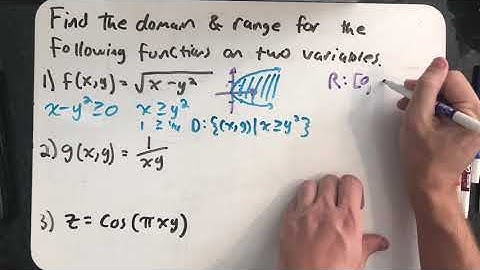 Find the domain & range for the
following functions on two variables.
1) f(x,y) = √(x-y²) R: [0,
x-y² ≥ 0 x ≥ y²
D: {(x,y) | x ≥ y²}
2) g(x,y) = 1/xy
3) z = cos(πxy)